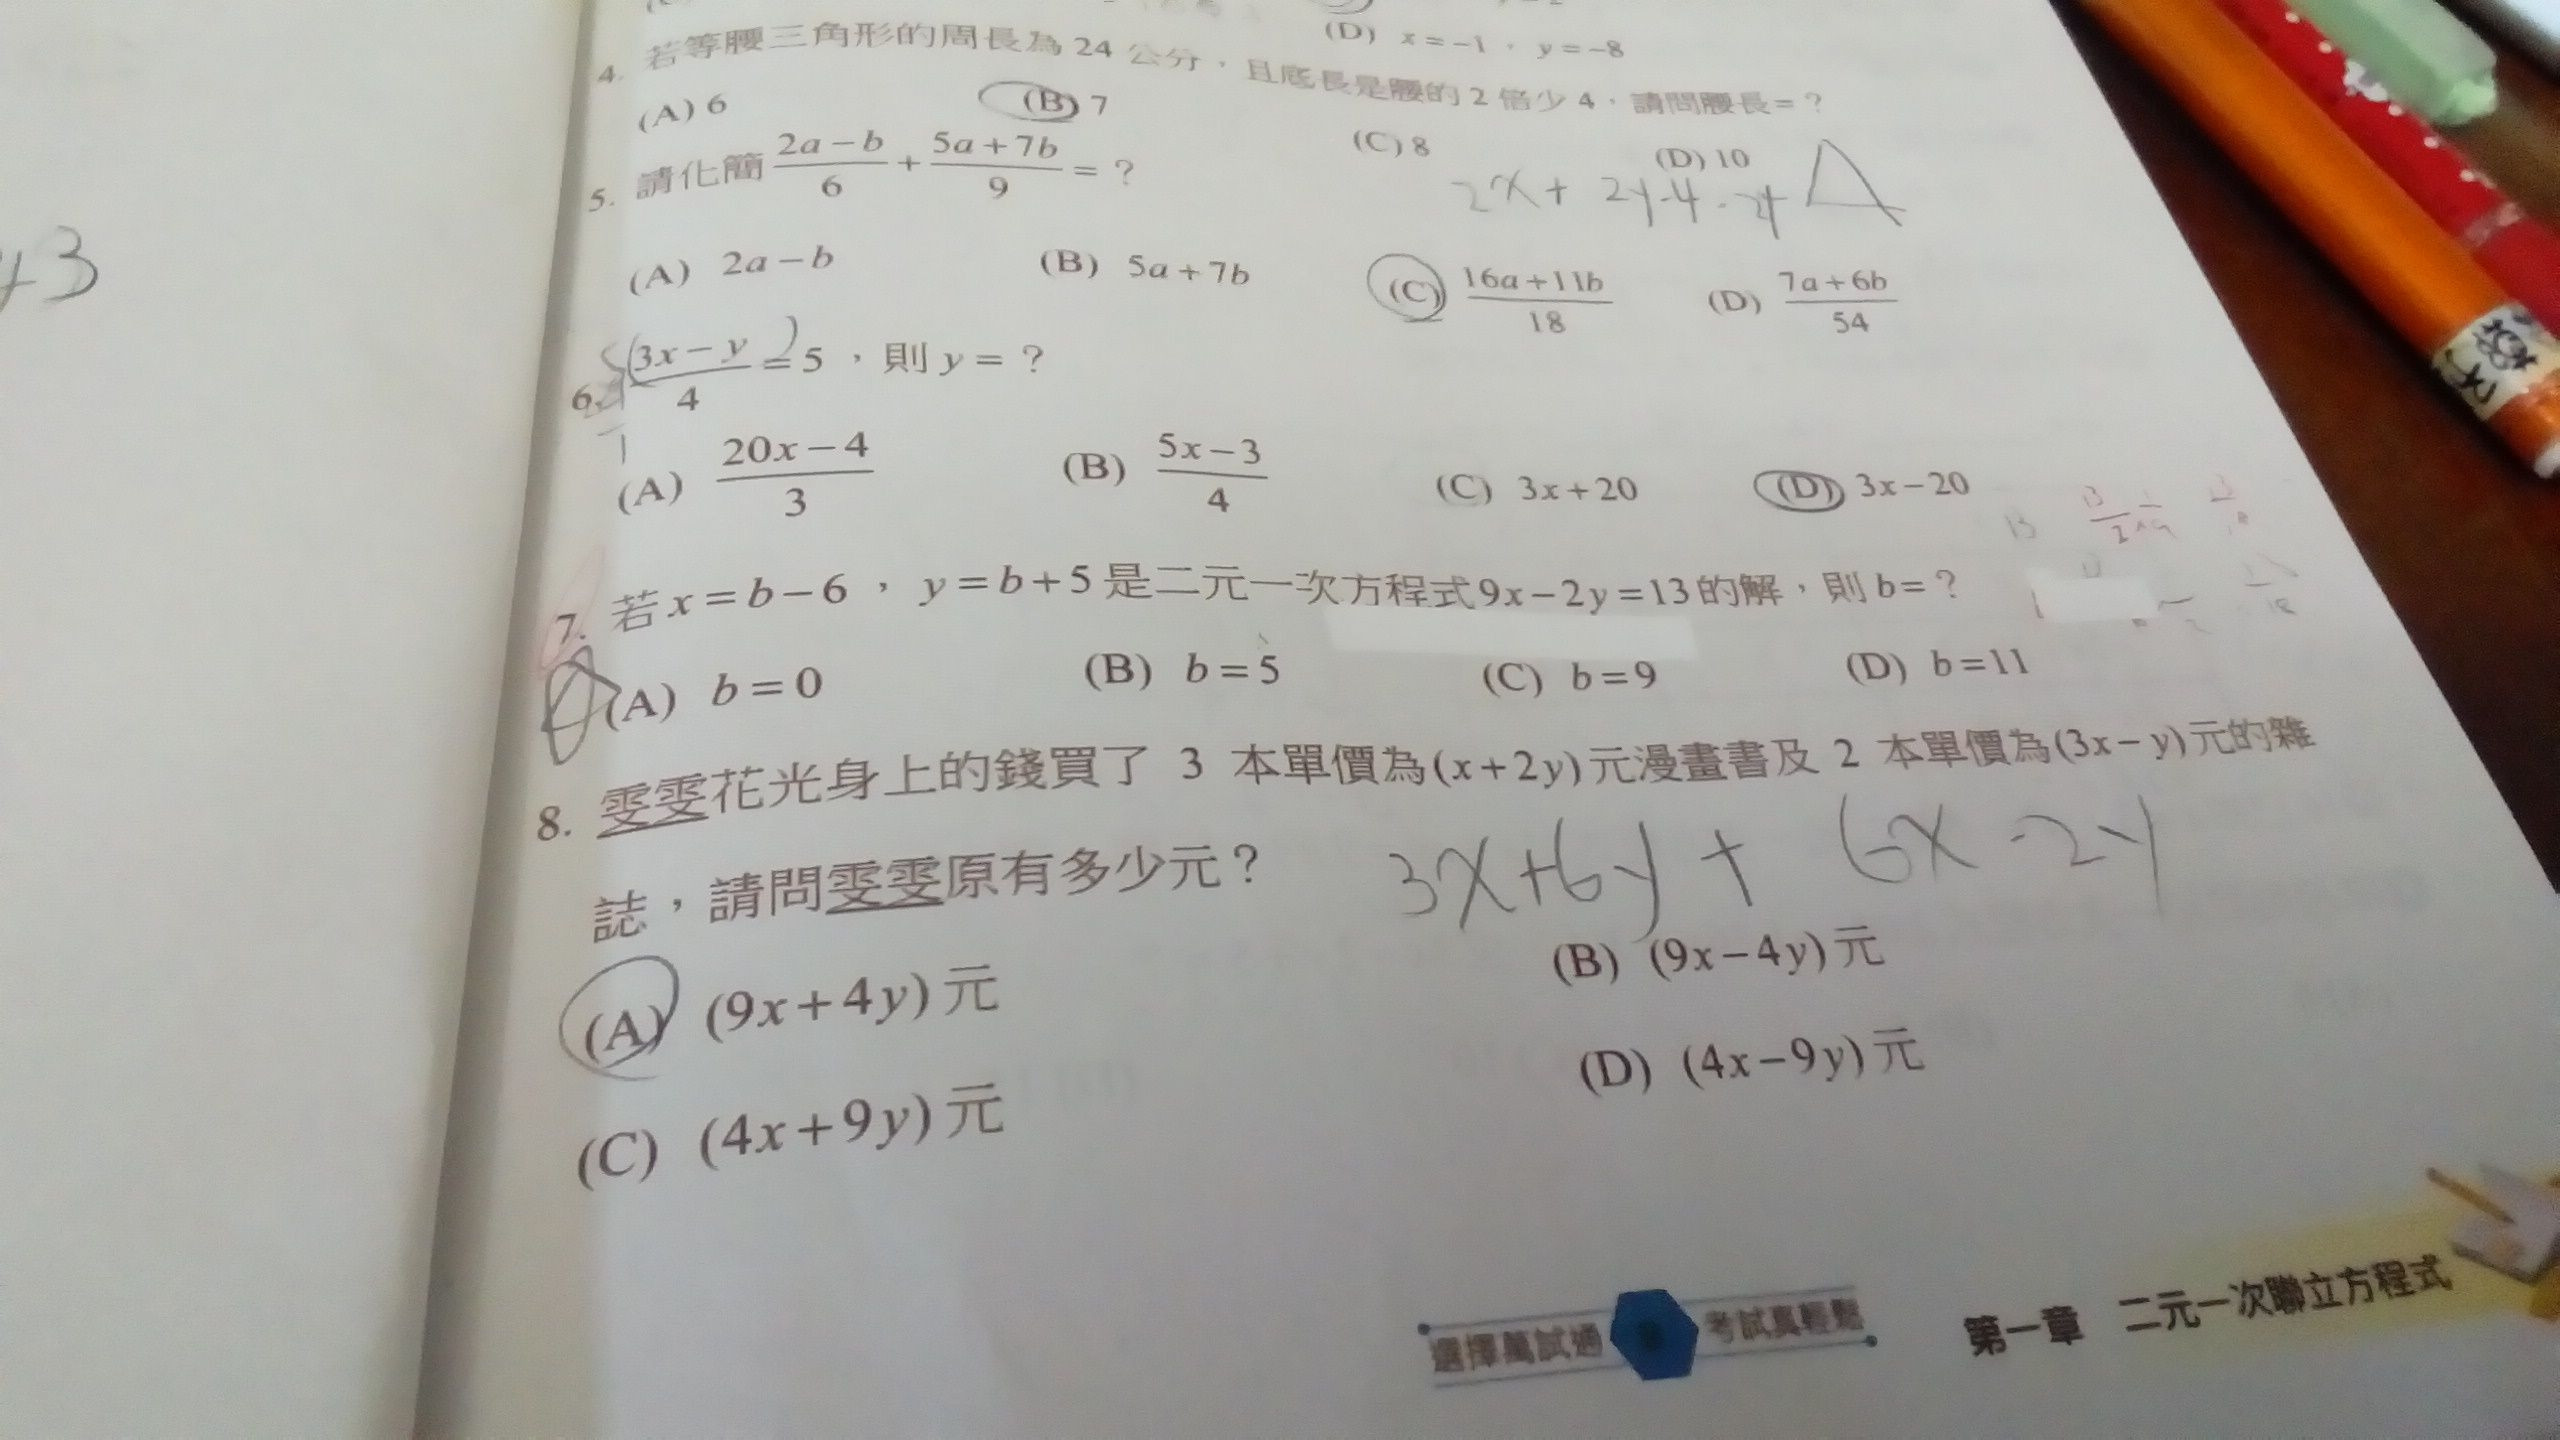 (D) x=-1，y=-8
4. 若等腰三角形的周長為 24 公分，且底長是腰的 2 倍少 4，請問腰長=？
(A) 6 (B) 7 (C) 8 (D) 10
5. 請化簡 (2a-b)/6 + (5a+7b)/9 = ？
2x+ 2y-4
(A) 2a-b (B) 5a+7b (C) (16a+11b)/18 (D) (7a+6b)/54
+3
6. (3x-y)/4 = 5，則 y = ？
(A) (20x-4)/3 (B) (5x-3)/4 (C) 3x+20 (D) 3x-20
7. 若 x=b-6，y=b+5 是二元一次方程式 9x-2y=13 的解，則 b=？
(A) b=0 (B) b=5 (C) b=9 (D) b=11
8. 雯雯花光身上的錢買了 3 本單價為(x+2y)元漫畫書及 2 本單價為(3x-y)元的雜
誌，請問雯雯原有多少元？
3x+6y+6x-2y
(A) (9x+4y)元 (B) (9x-4y)元
(C) (4x+9y)元 (D) (4x-9y)元
選擇萬試通 考試真輕鬆
第一章 二元一次聯立方程式